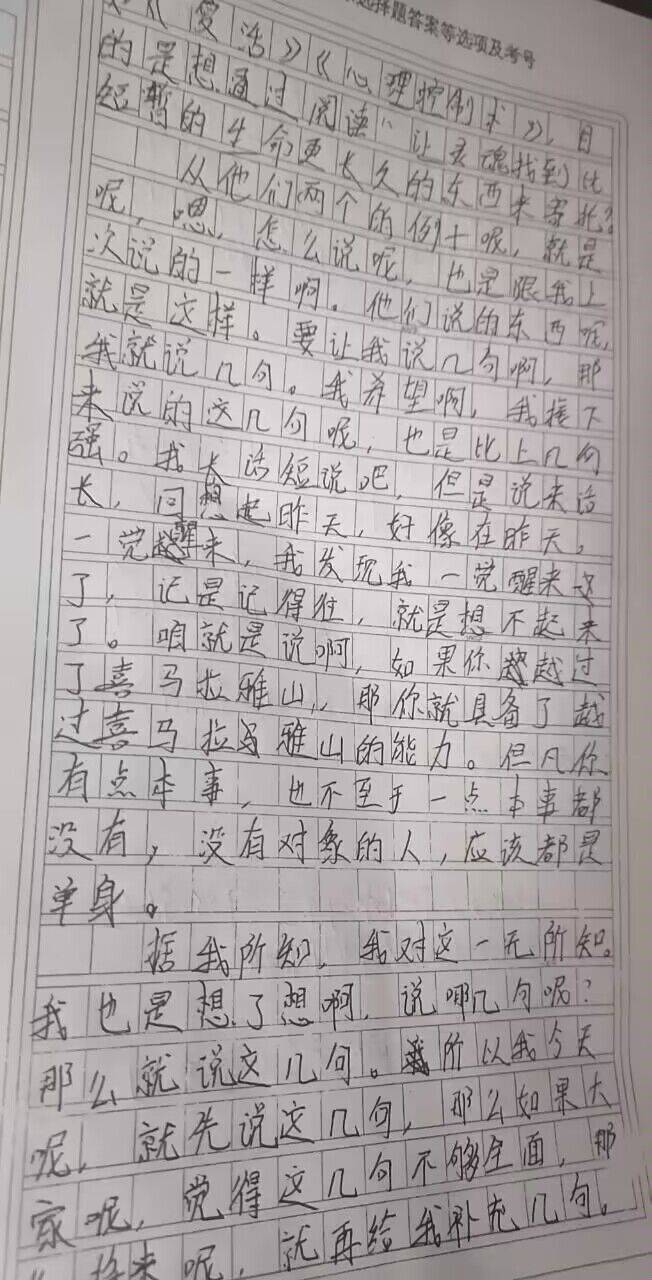 选择题答案等选项及考号
《复活》《心理控制术》，目
的是想通过阅读“让灵魂找到比
短暂的生命更长久的东西来寄托？
从他们两个的例子呢，就是
呢，嗯，怎么说呢，也是跟我上
次说的一样啊。他们说的东西呢，
就是这样。要让我说几句啊，那
我就说几句。我希望啊，我接下
来说的这几句呢，也是比上几句
强。我长话短说吧，但是说来话
长，回想起昨天，好像在昨天。
一觉醒来，我发现我一觉醒来
了，记是记得住，就是想不起来
了。咱就是说啊，如果你越过
了喜马拉雅山，那你就具备了越
过喜马拉雅山的能力。但凡你
有点本事，也不至于一点本事都
没有，没有对象的人，应该都是
单身。
据我所知，我对这一无所知。
我也是想了想啊，说哪几句呢？
那么就说这几句。所以我今天
呢，就先说这几句，那么如果大
家呢，觉得这几句不够全面，那
将来呢，就再给我补充几句。